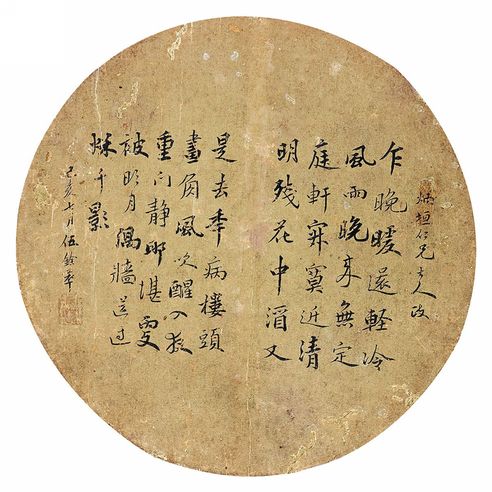 垣仁兄大人政
乍晚暖還輕冷
風雨晚來無定
庭軒寂寞近清
明殘花中酒又
是去年病樓頭
畫角風吹醒入夜
重門靜那堪更
被明月隔牆送過
秌千影
己亥七月伍銓萃